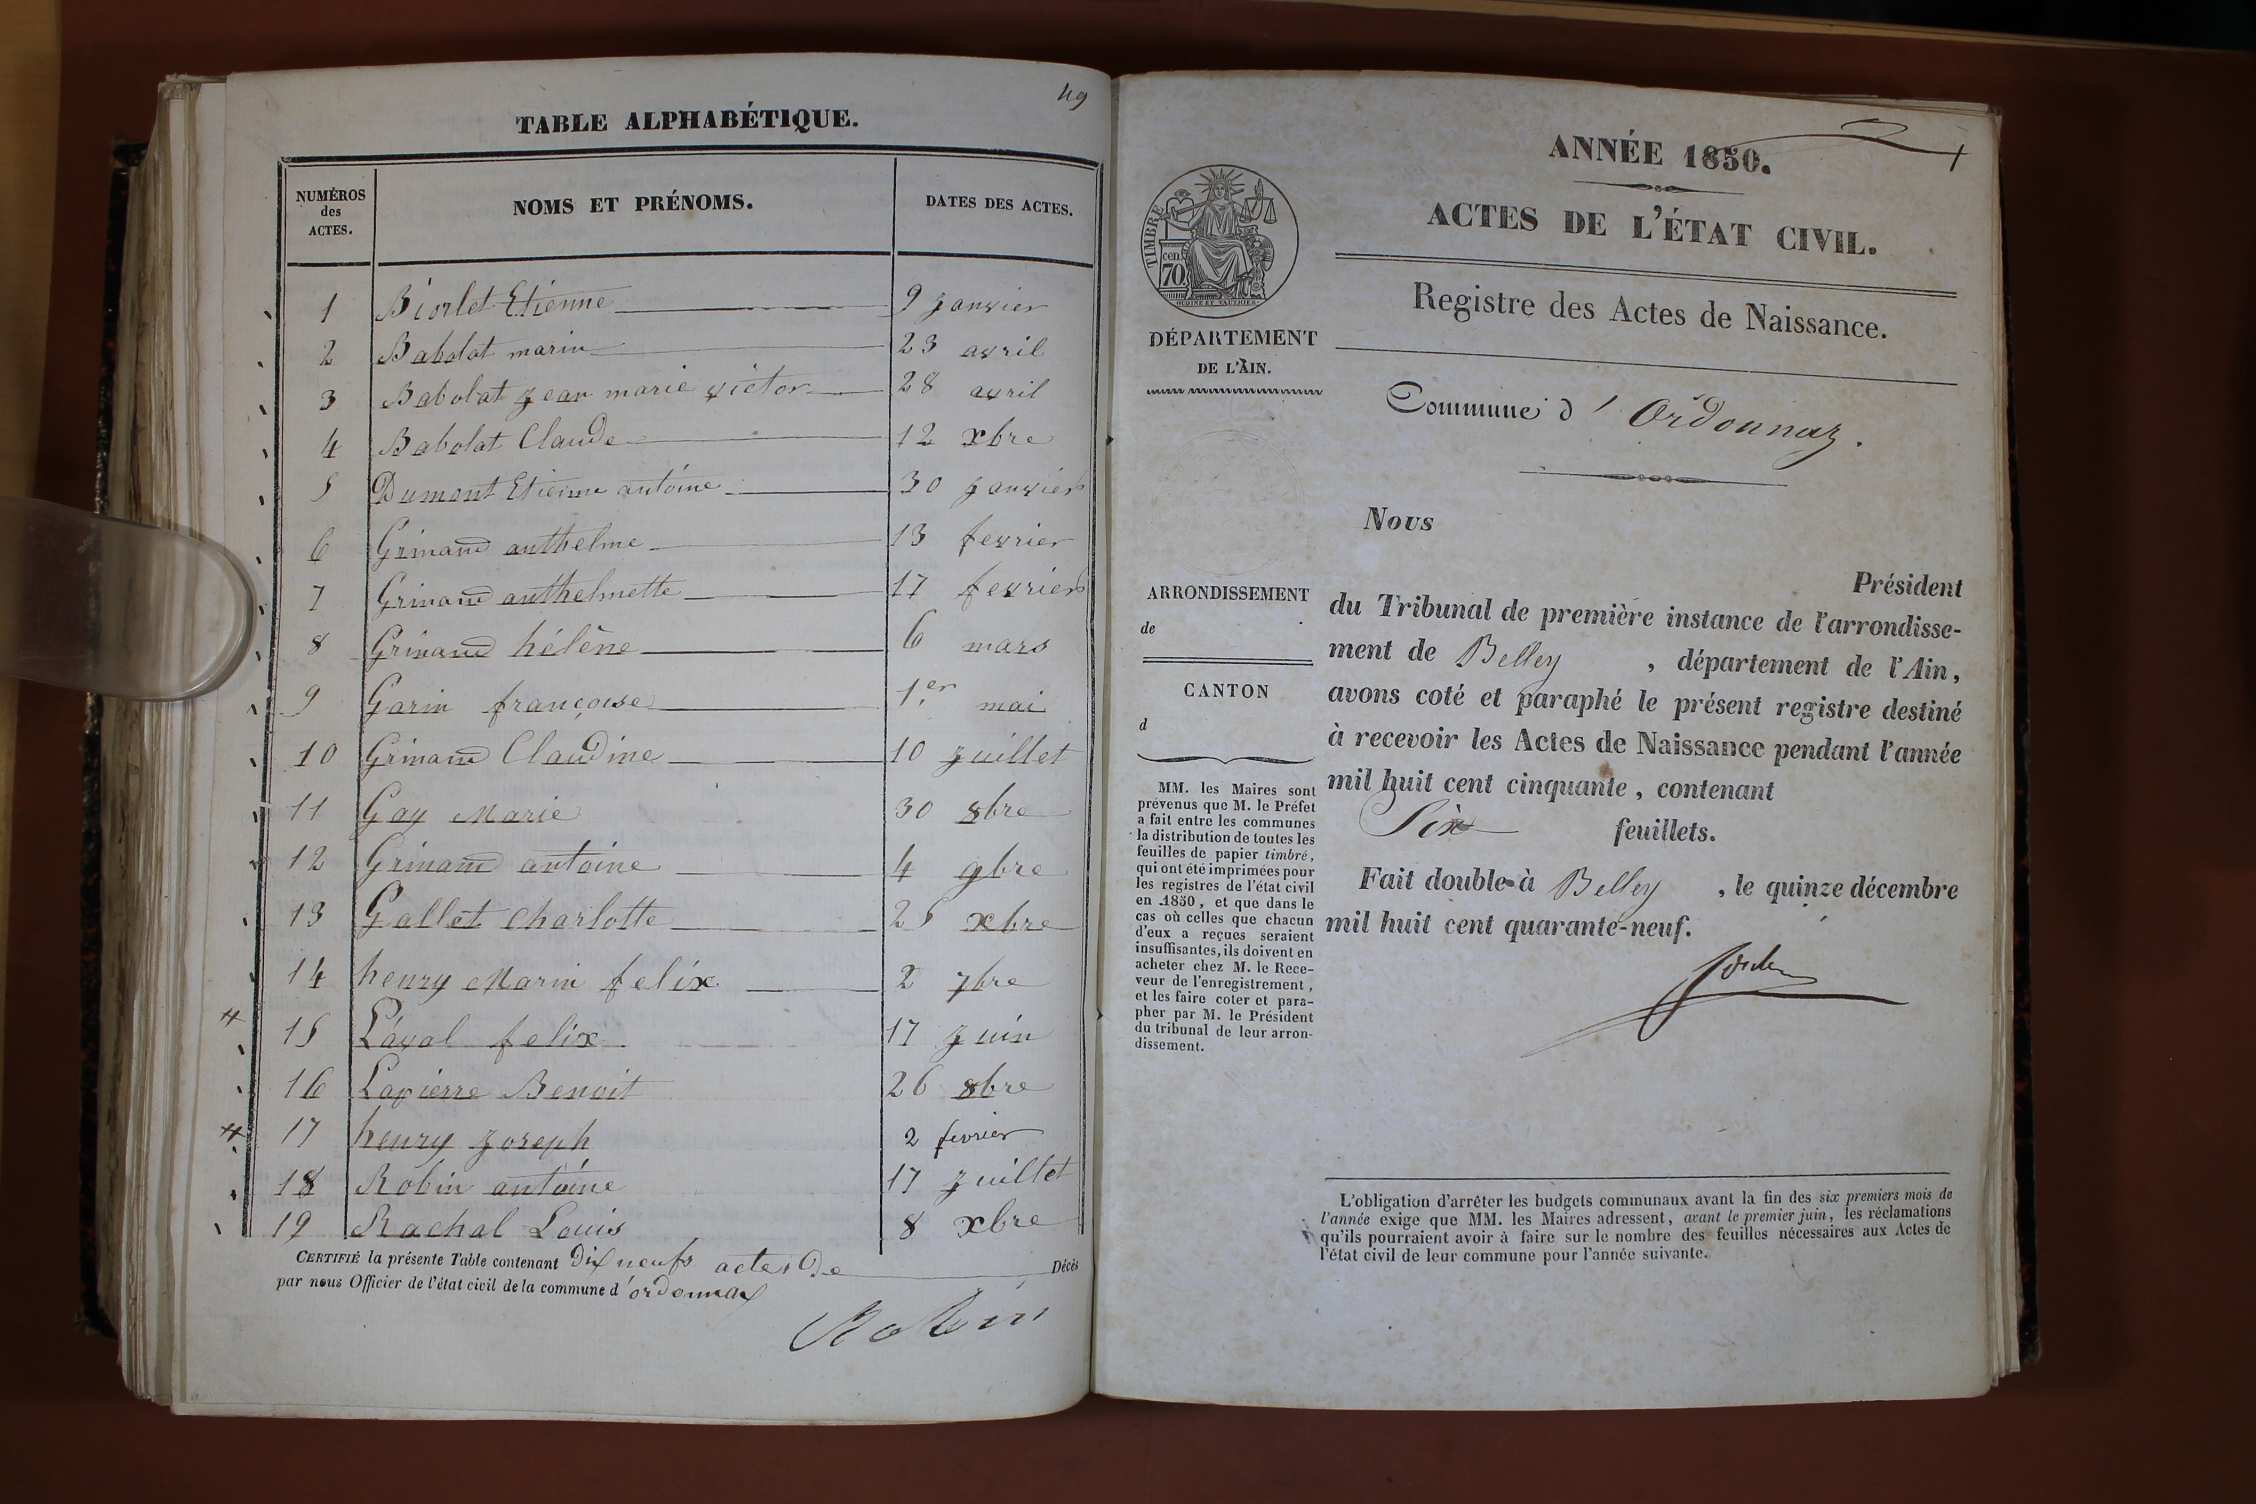 49
TABLE ALPHABÉTIQUE.
NUMÉROS des ACTES. NOMS ET PRÉNOMS. DATES DES ACTES.
1 Biorlet Etienne 9 janvier
2 Babolat marin 23 avril
3 Babolat jean marie victor 28 avril
4 Babolat Claude 12 xbre
5 Dumont Etienne antoine 30 janvier
6 Grinand anthelme 13 fevrier
7 Grinand anthelmette 17 fevrier
8 Grinand hélène 6 mars
9 Garin françoise 1.er mai
10 Grinand Claudine 10 juillet
11 Gay Marie 30 8bre
12 Grinand antoine 4 9bre
13 Gallet charlotte 25 xbre
14 henry Marin felix 2 7bre
15 Laval felix 17 juin
16 Lapierre Benoit 26 8bre
17 henry joseph 2 fevrier
18 Robin antoine 17 juillet
19 Rachal Louis 8 xbre
CERTIFIÉ la présente Table contenant Dix neufs actes De Décès
par nous Officier de l'état civil de la commune d'ordonnaz
Robin
1
ANNÉE 1850.
ACTES DE L'ÉTAT CIVIL.
Registre des Actes de Naissance.
TIMBRE
cen.
70
DÉPARTEMENT
DE L'AIN.
Commune d'Ordonnaz.
ARRONDISSEMENT
de
CANTON
d
MM. les Maires sont
prévenus que M. le Préfet
a fait entre les communes
la distribution de toutes les
feuilles de papier timbré,
qui ont été imprimées pour
les registres de l'état civil
en 1850, et que dans le
cas où celles que chacun
d'eux a reçues seraient
insuffisantes, ils doivent en
acheter chez M. le Rece-
veur de l'enregistrement,
et les faire coter et para-
pher par M. le Président
du tribunal de leur arron-
dissement.
Nous
Président
du Tribunal de première instance de l'arrondisse-
ment de Belley, département de l'Ain,
avons coté et paraphé le présent registre destiné
à recevoir les Actes de Naissance pendant l'année
mil huit cent cinquante, contenant
Six feuillets.
Fait double à Belley, le quinze décembre
mil huit cent quarante-neuf.
L'obligation d'arrêter les budgets communaux avant la fin des six premiers mois de
l'année exige que MM. les Maires adressent, avant le premier juin, les réclamations
qu'ils pourraient avoir à faire sur le nombre des feuilles nécessaires aux Actes de
l'état civil de leur commune pour l'année suivante.